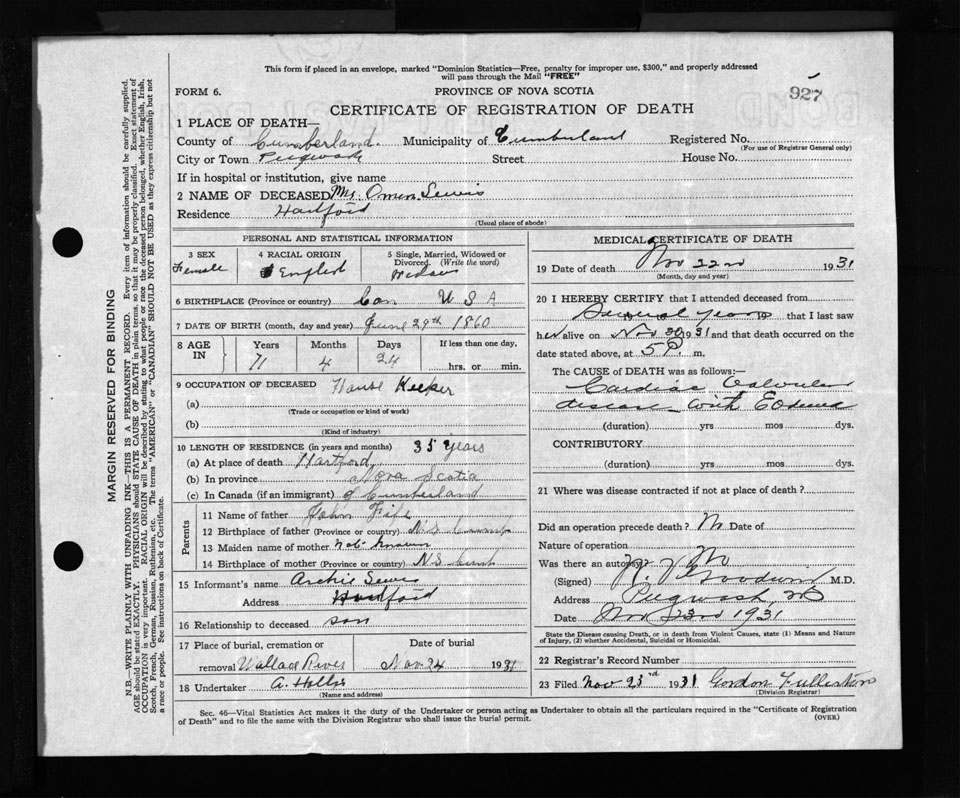 This form if placed in an envelope, marked "Dominion Statistics—Free, penalty for improper use, $300," and properly addressed
will pass through the Mail "FREE"
927
FORM 6.
PROVINCE OF NOVA SCOTIA
CERTIFICATE OF REGISTRATION OF DEATH
1 PLACE OF DEATH—
County of Cumberland. Municipality of Cumberland Registered No.
(For use of Registrar General only)
City or Town Pugwash Street House No.
If in hospital or institution, give name
2 NAME OF DECEASED Mrs. Lewis
Residence Hartford
(Usual place of abode)
PERSONAL AND STATISTICAL INFORMATION
3 SEX Female
4 RACIAL ORIGIN
5 Single, Married, Widowed or Divorced. (Write the word)
6 BIRTHPLACE (Province or country) USA
7 DATE OF BIRTH (month, day and year) June 29th 1860
8 AGE IN Years Months Days If less than one day,
71 4 24 hrs. or min.
9 OCCUPATION OF DECEASED House Keeper
(a)
(Trade or occupation or kind of work)
(b)
(Kind of industry)
10 LENGTH OF RESIDENCE (in years and months) 35 years
(a) At place of death Hartford
(b) In province Nova Scotia
(c) In Canada (if an immigrant) of Cumberland
Parents
11 Name of father John
12 Birthplace of father (Province or country) N.S.
13 Maiden name of mother not known
14 Birthplace of mother (Province or country) N.S.
15 Informant's name Archie Lewis
Address Hartford
16 Relationship to deceased son
17 Place of burial, cremation or removal Wallace River
Date of burial Nov 24 1931
18 Undertaker A.
(Name and address)
MEDICAL CERTIFICATE OF DEATH
19 Date of death Nov 22nd 1931
(Month, day and year)
20 I HEREBY CERTIFY that I attended deceased from
Several years 19 that I last saw
her alive on Nov 20 1931 and that death occurred on the
date stated above, at 5 P. m.
The CAUSE of DEATH was as follows:—
Cardiac Valvular
disease with
(duration) yrs mos dys.
CONTRIBUTORY
(duration) yrs mos dys.
21 Where was disease contracted if not at place of death?
Did an operation precede death? No Date of
Nature of operation
Was there an autopsy? No
(Signed) Goodwin M.D.
Address Pugwash, NS
Date Nov 23rd 1931
State the Disease causing Death, or in death from Violent Causes, state (1) Means and Nature
of Injury, (2) whether Accidental, Suicidal or Homicidal.
22 Registrar's Record Number
23 Filed Nov 23rd 1931 Gordon Fullerton
(Division Registrar)
Sec. 46—Vital Statistics Act makes it the duty of the Undertaker or person acting as Undertaker to obtain all the particulars required in the "Certificate of Registration
of Death" and to file the same with the Division Registrar who shall issue the burial permit.
(OVER)
MARGIN RESERVED FOR BINDING
N.B.—WRITE PLAINLY WITH UNFADING INK—THIS IS A PERMANENT RECORD. Every item of information should be carefully supplied.
AGE should be stated EXACTLY. PHYSICIANS should STATE CAUSE OF DEATH in plain terms, so that it may be properly classified. Exact statement of
OCCUPATION is very important. RACIAL ORIGIN will be described by stating to what people or race the deceased person belonged, whether English, Irish,
Scotch, French, German, Russian, Ruthenian, etc. The terms "AMERICAN" or "CANADIAN" SHOULD NOT BE USED as they express citizenship but not
a race or people. See instructions on back of Certificate.